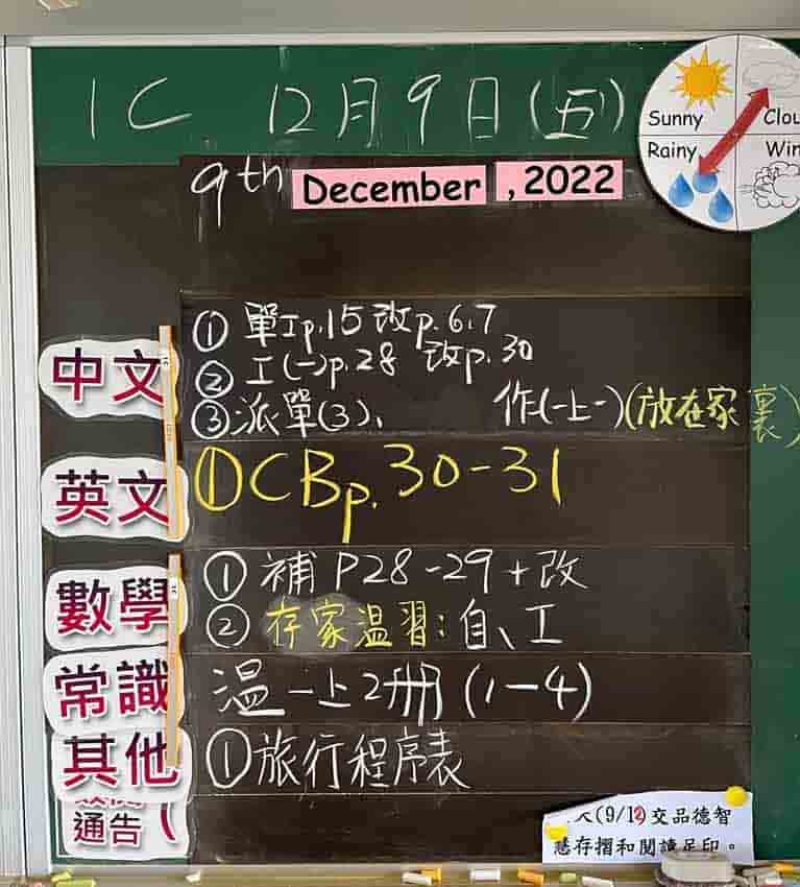 1C 12月9日(五)
Sunny
Rainy
9th December , 2022
中文
① 單工p.15 改p.6.7
② 工(一)p.28 改p.30
③派單(3)、 作(一上一)(放在家裏)
英文
①CBp.30-31
數學
① 補 P28-29+改
② 存家温習:自、工
常識
温一上2册(1-4)
其他
①旅行程序表
通告(
(9/12)交品德智
慧存摺和閱讀足印。